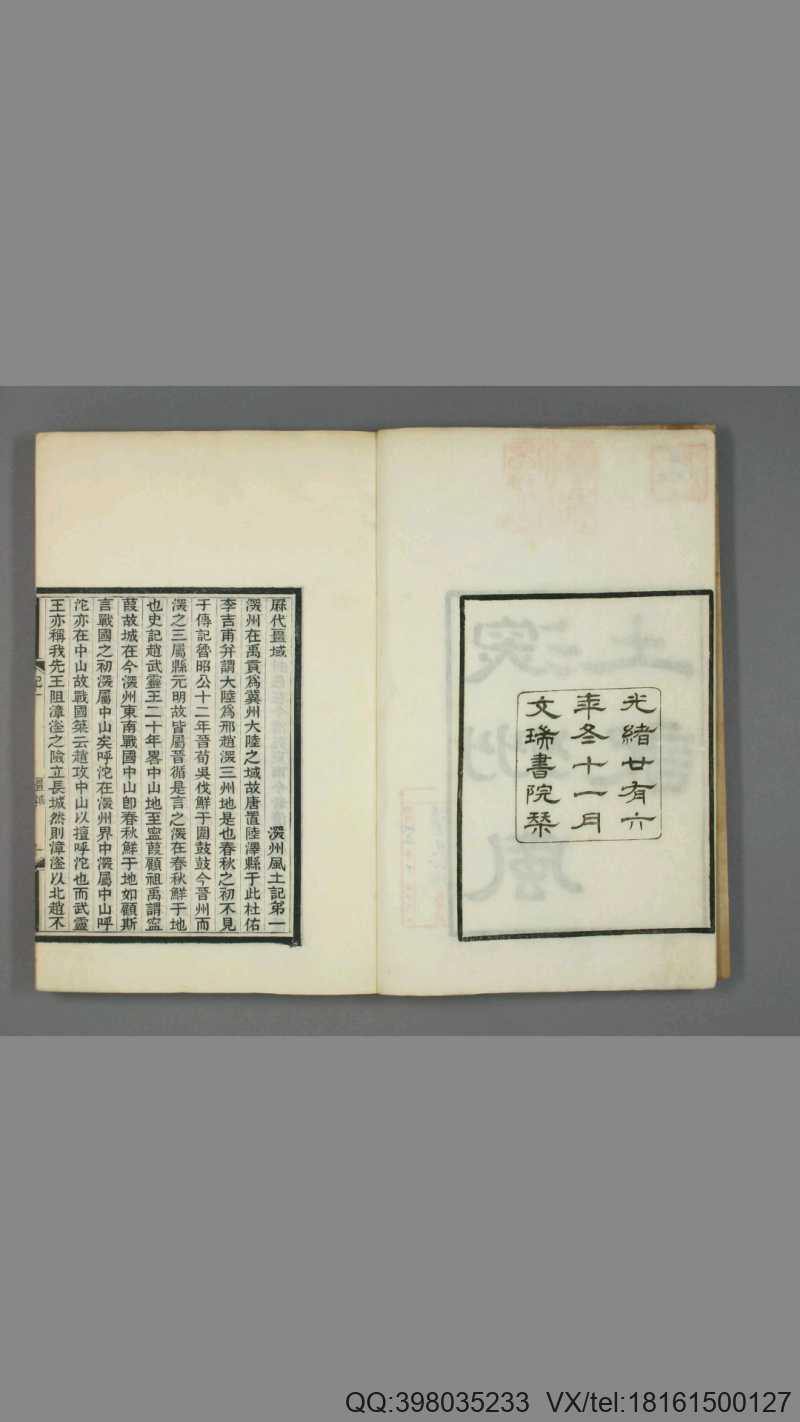 光緒廿有六
年冬十一月
文瑞書院栞
歷代疆域 深州風土記第一
深州在禹貢爲冀州大陸之域故唐置陸澤縣于此杜佑
李吉甫幷謂大陸爲邢趙深三州地是也春秋之初不見
于傳記魯昭公十二年晉荀吳伐鮮于圍鼓鼓今晉州而
深之三屬縣元明故皆屬晉循是言之深在春秋鮮于地
也史記趙武靈王二十年畧中山地至寍葭顧祖禹謂寍
葭故城在今深州東南戰國中山卽春秋鮮于地如顧斯
言戰國之初深屬中山矣呼沱在深州界中深屬中山呼
沱亦在中山故戰國筞云趙攻中山以擅呼沱也而武靈
王亦稱我先王阻漳滏之險立長城然則漳滏以北趙不
QQ:398035233 VX/tel:18161500127